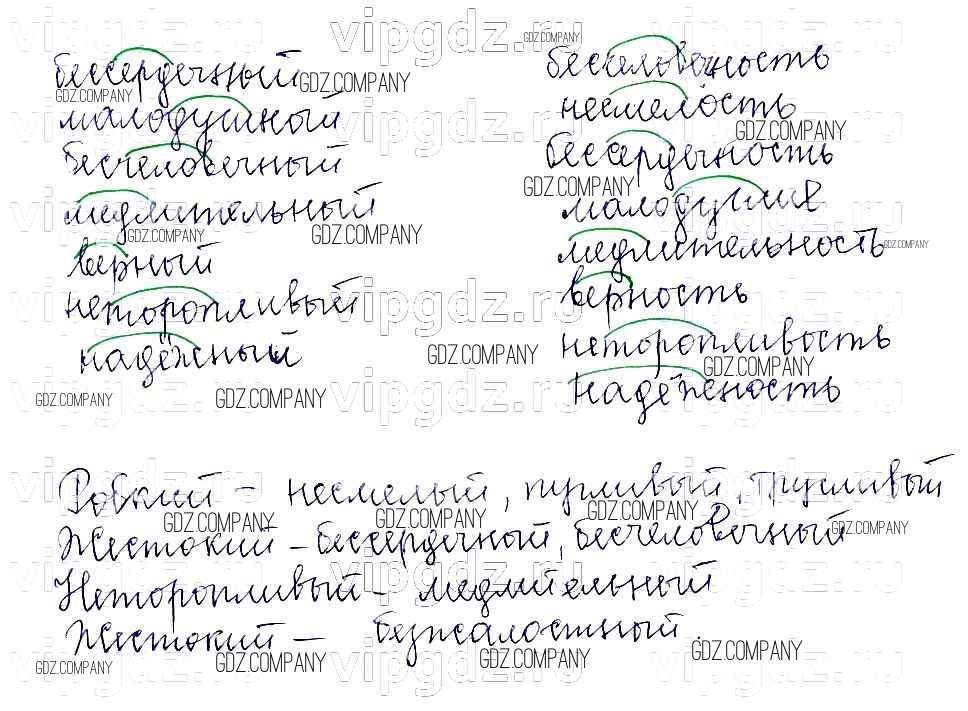 бессердечный
малодушный
бесчеловечный
медлительный
верный
неторопливый
надёжный
бесчеловечность
несмелость
бессердечность
малодушие
медлительность
верность
неторопливость
надёжность
Робкий – несмелый, пугливый, трусливый
Жестокий – бессердечный, бесчеловечный
Неторопливый – медлительный
Жестокий – безжалостный.
vipgdz.ru
GDZ.COMPANY